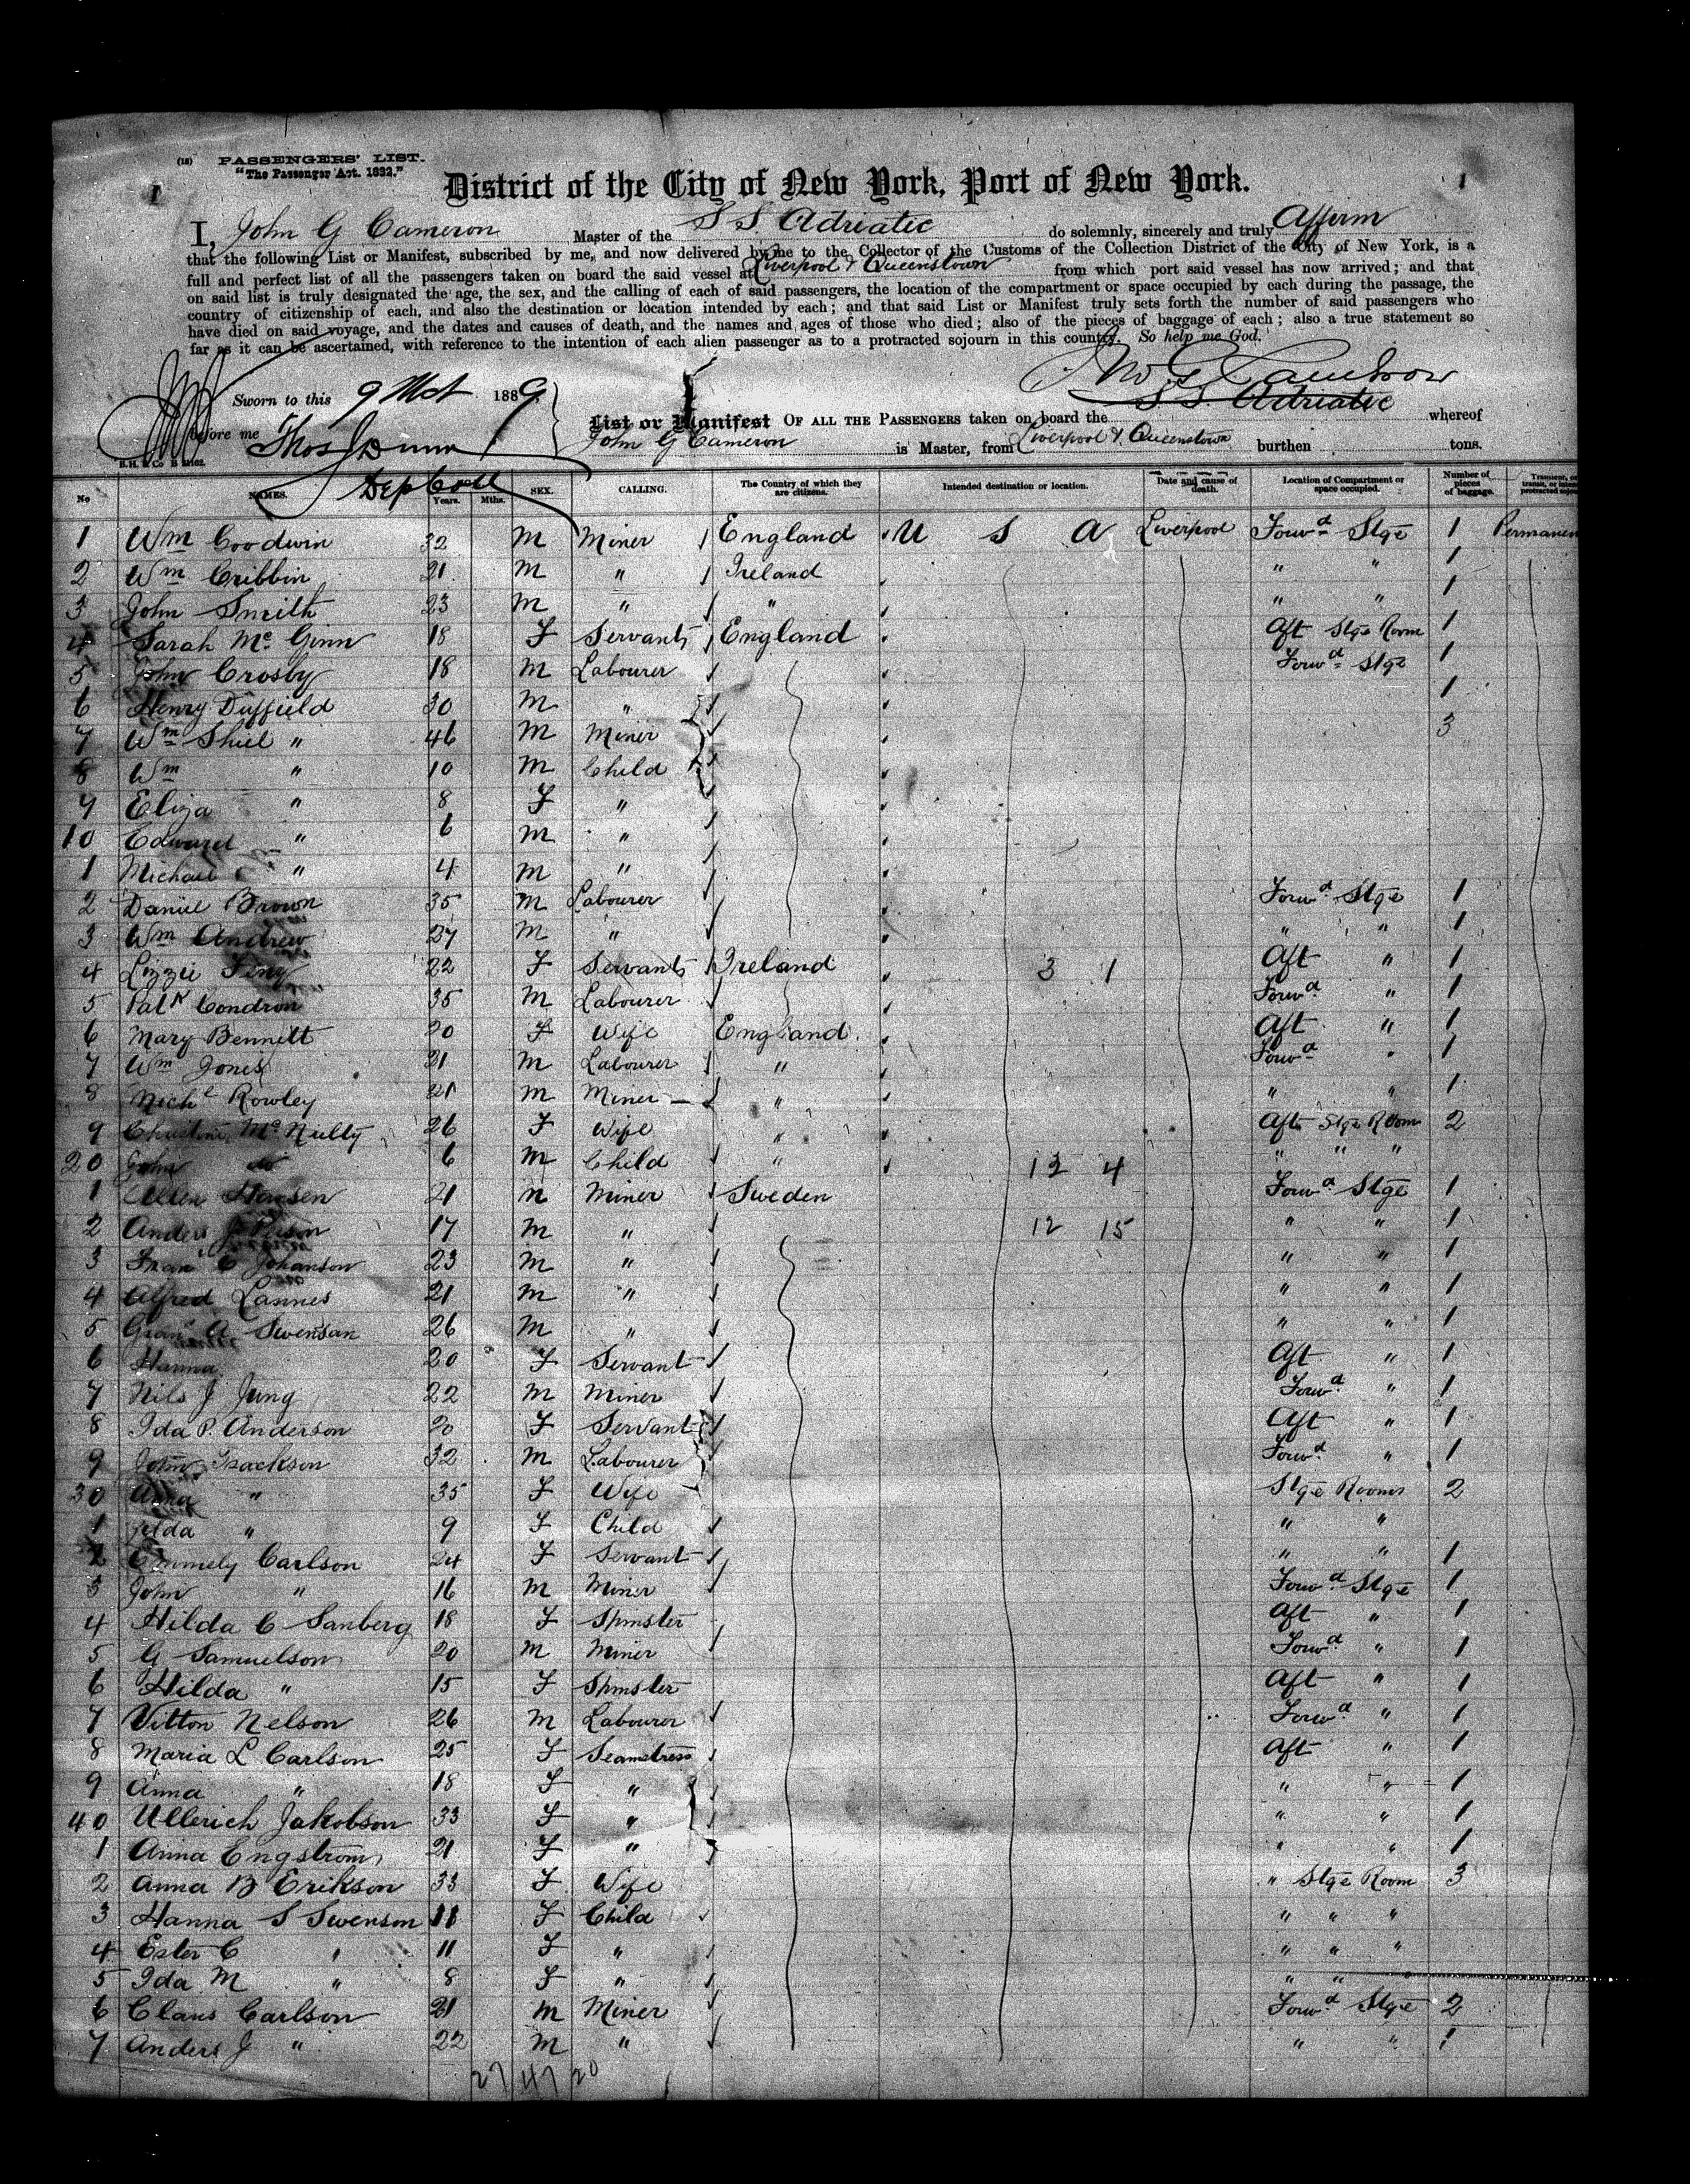 (18) PASSENGERS' LIST.
"The Passenger Act. 1882."
1 District of the City of New York, Port of New York. 1
I, John G Cameron Master of the S.S. Adriatic do solemnly, sincerely and truly Affirm
that the following List or Manifest, subscribed by me, and now delivered by me to the Collector of the Customs of the Collection District of the City of New York, is a
full and perfect list of all the passengers taken on board the said vessel at Liverpool & Queenstown from which port said vessel has now arrived; and that
on said list is truly designated the age, the sex, and the calling of each of said passengers, the location of the compartment or space occupied by each during the passage, the
country of citizenship of each, and also the destination or location intended by each; and that said List or Manifest truly sets forth the number of said passengers who
have died on said voyage, and the dates and causes of death, and the names and ages of those who died; also of the pieces of baggage of each; also a true statement so
far as it can be ascertained, with reference to the intention of each alien passenger as to a protracted sojourn in this country. So help me God.
Jno G Cameron
S.S. Adriatic
Sworn to this 9 1889
before me Thos J Dunn
Dep Coll
List or Manifest OF ALL THE PASSENGERS taken on board the whereof
John G Cameron is Master, from Liverpool & Queenstown burthen tons.
No NAMES. Years. Mths. SEX. CALLING. The Country of which they are citizens. Intended destination or location. Date and cause of death. Location of Compartment or space occupied. Number of pieces of baggage.
1 Wm Goodwin 32 M Miner England U S A Liverpool Forwd Stge 1 Permanen
2 Wm Cribbin 21 M " Ireland " " 1
3 John Smith 23 M " " " " 1
4 Sarah Mc Ginn 18 F Servant England Aft Stge Room 1
5 John Crosby 18 M Labourer Forwd Stge 1
6 Henry Duffield 30 M " 1
7 Wm Shiel " 46 M Miner 3
8 Wm " 10 M Child
9 Eliza " 8 F "
10 Edward " 6 M "
1 Michael " 4 M "
2 Daniel Brown 35 M Labourer Forwd Stge 1
3 Wm Andrew 27 M " " " 1
4 Lizzie 22 F Servant Ireland 3 1 Aft " 1
5 Patk Condron 35 M Labourer Forwd " 1
6 Mary Bennett 20 F Wife England Aft " 1
7 Wm Jones 21 M Labourer " Forwd " 1
8 Michl Rowley 21 M Miner " " " 1
9 Christina Mc Nulty 26 F Wife " Aft Stge Room 2
20 John do 6 M Child " 12 4 " " "
1 Hansen 21 M Miner Sweden Forwd Stge 1
2 Anders J Person 17 M " 12 15 " " 1
3 Johanson 23 M " " " 1
4 Alfred Lannes 21 M " " " 1
5 A Swensan 26 M " " " 1
6 Hanna 20 F Servant Aft " 1
7 Nils J Jung 22 M Miner Forwd " 1
8 Ida P. Anderson 20 F Servant Aft " 1
9 John Isackson 32 M Labourer Forwd " 1
30 Anna " 35 F Wife Stge Rooms 2
1 " 9 F Child " "
2 Emmely Carlson 24 F Servant " " 1
3 John " 16 M Miner Forwd Stge 1
4 Hilda C Sanberg 18 F Spinster Aft " 1
5 G Samuelson 20 M Miner Forwd " 1
6 Hilda " 15 F Spinster Aft " 1
7 Vitton Nelson 26 M Labourer Forwd " 1
8 Maria L Carlson 25 F Seamstress Aft " 1
9 Anna " 18 F " " " 1
40 Ullerich Jakobson 33 F " " " 1
1 Anna Engstrom 21 F " " " 1
2 Anna B Erikson 33 F Wife " Stge Room 3
3 Hanna S Swenson 11 F Child " " "
4 Ester C " 11 F " " " "
5 Ida M " 8 F " " "
6 Claus Carlson 21 M Miner Forwd Stge 2
7 Anders J " 22 M " " " 1
27 47 20